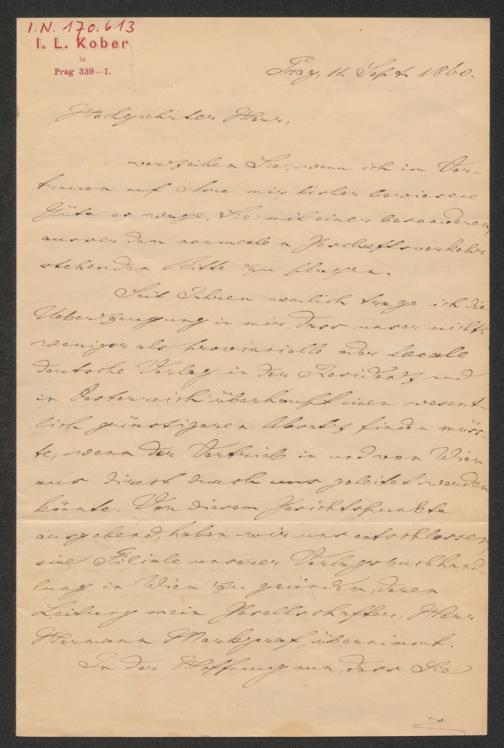 I.N. 170.613
I. L. Kober
in
Prag 339–I.
Prag, 11 Sept. 1860.
Hochgeehrter Herr,
verzeihen Sie, wenn ich im Ver-
trauen auf Ihre mir bisher bewiesene
Güte es wage, Sie mit einer besonderen,
ausser dem normalen Geschäftsverkehr
stehenden Bitte zu plagen.
Seit Jahren nemlich trage ich die
Ueberzeugung in mir, dass unser nichts
weniger als provinzielle oder locale
deutsche Verlag in der Residenz und
in Oesterreich überhaupt einen wesent-
lich günstigeren Absatz finden müss-
te, wenn der Vertrieb in und von Wien
aus direct durch uns geleitet werden
könnte. Von diesem Gesichtspunkte
ausgehend, haben wir uns entschlossen,
eine Filiale unserer Verlagsbuchhand-
lung in Wien zu gründen, deren
Leitung mein Gesellschafter, Herr
Hermann Markgraf, übernimmt.
In der Hoffnung nun, dass Sie